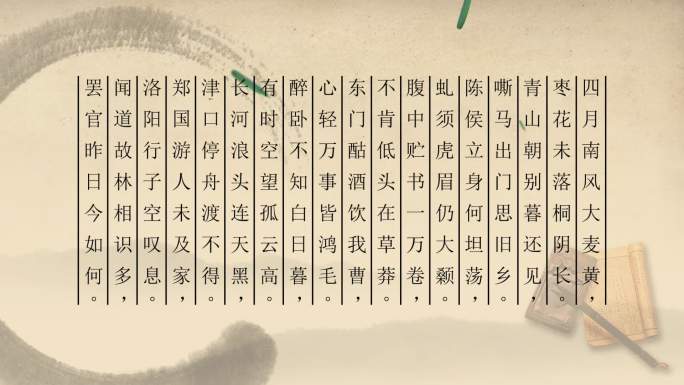 四月南风大麦黄，
枣花未落桐阴长。
青山朝别暮还见，
嘶马出门思旧乡。
陈侯立身何坦荡，
虬须虎眉仍大颡。
腹中贮书一万卷，
不肯低头在草莽。
东门酤酒饮我曹，
心轻万事皆鸿毛。
醉卧不知白日暮，
有时空望孤云高。
长河浪头连天黑，
津口停舟渡不得。
郑国游人未及家，
洛阳行子空叹息。
闻道故林相识多，
罢官昨日今如何。